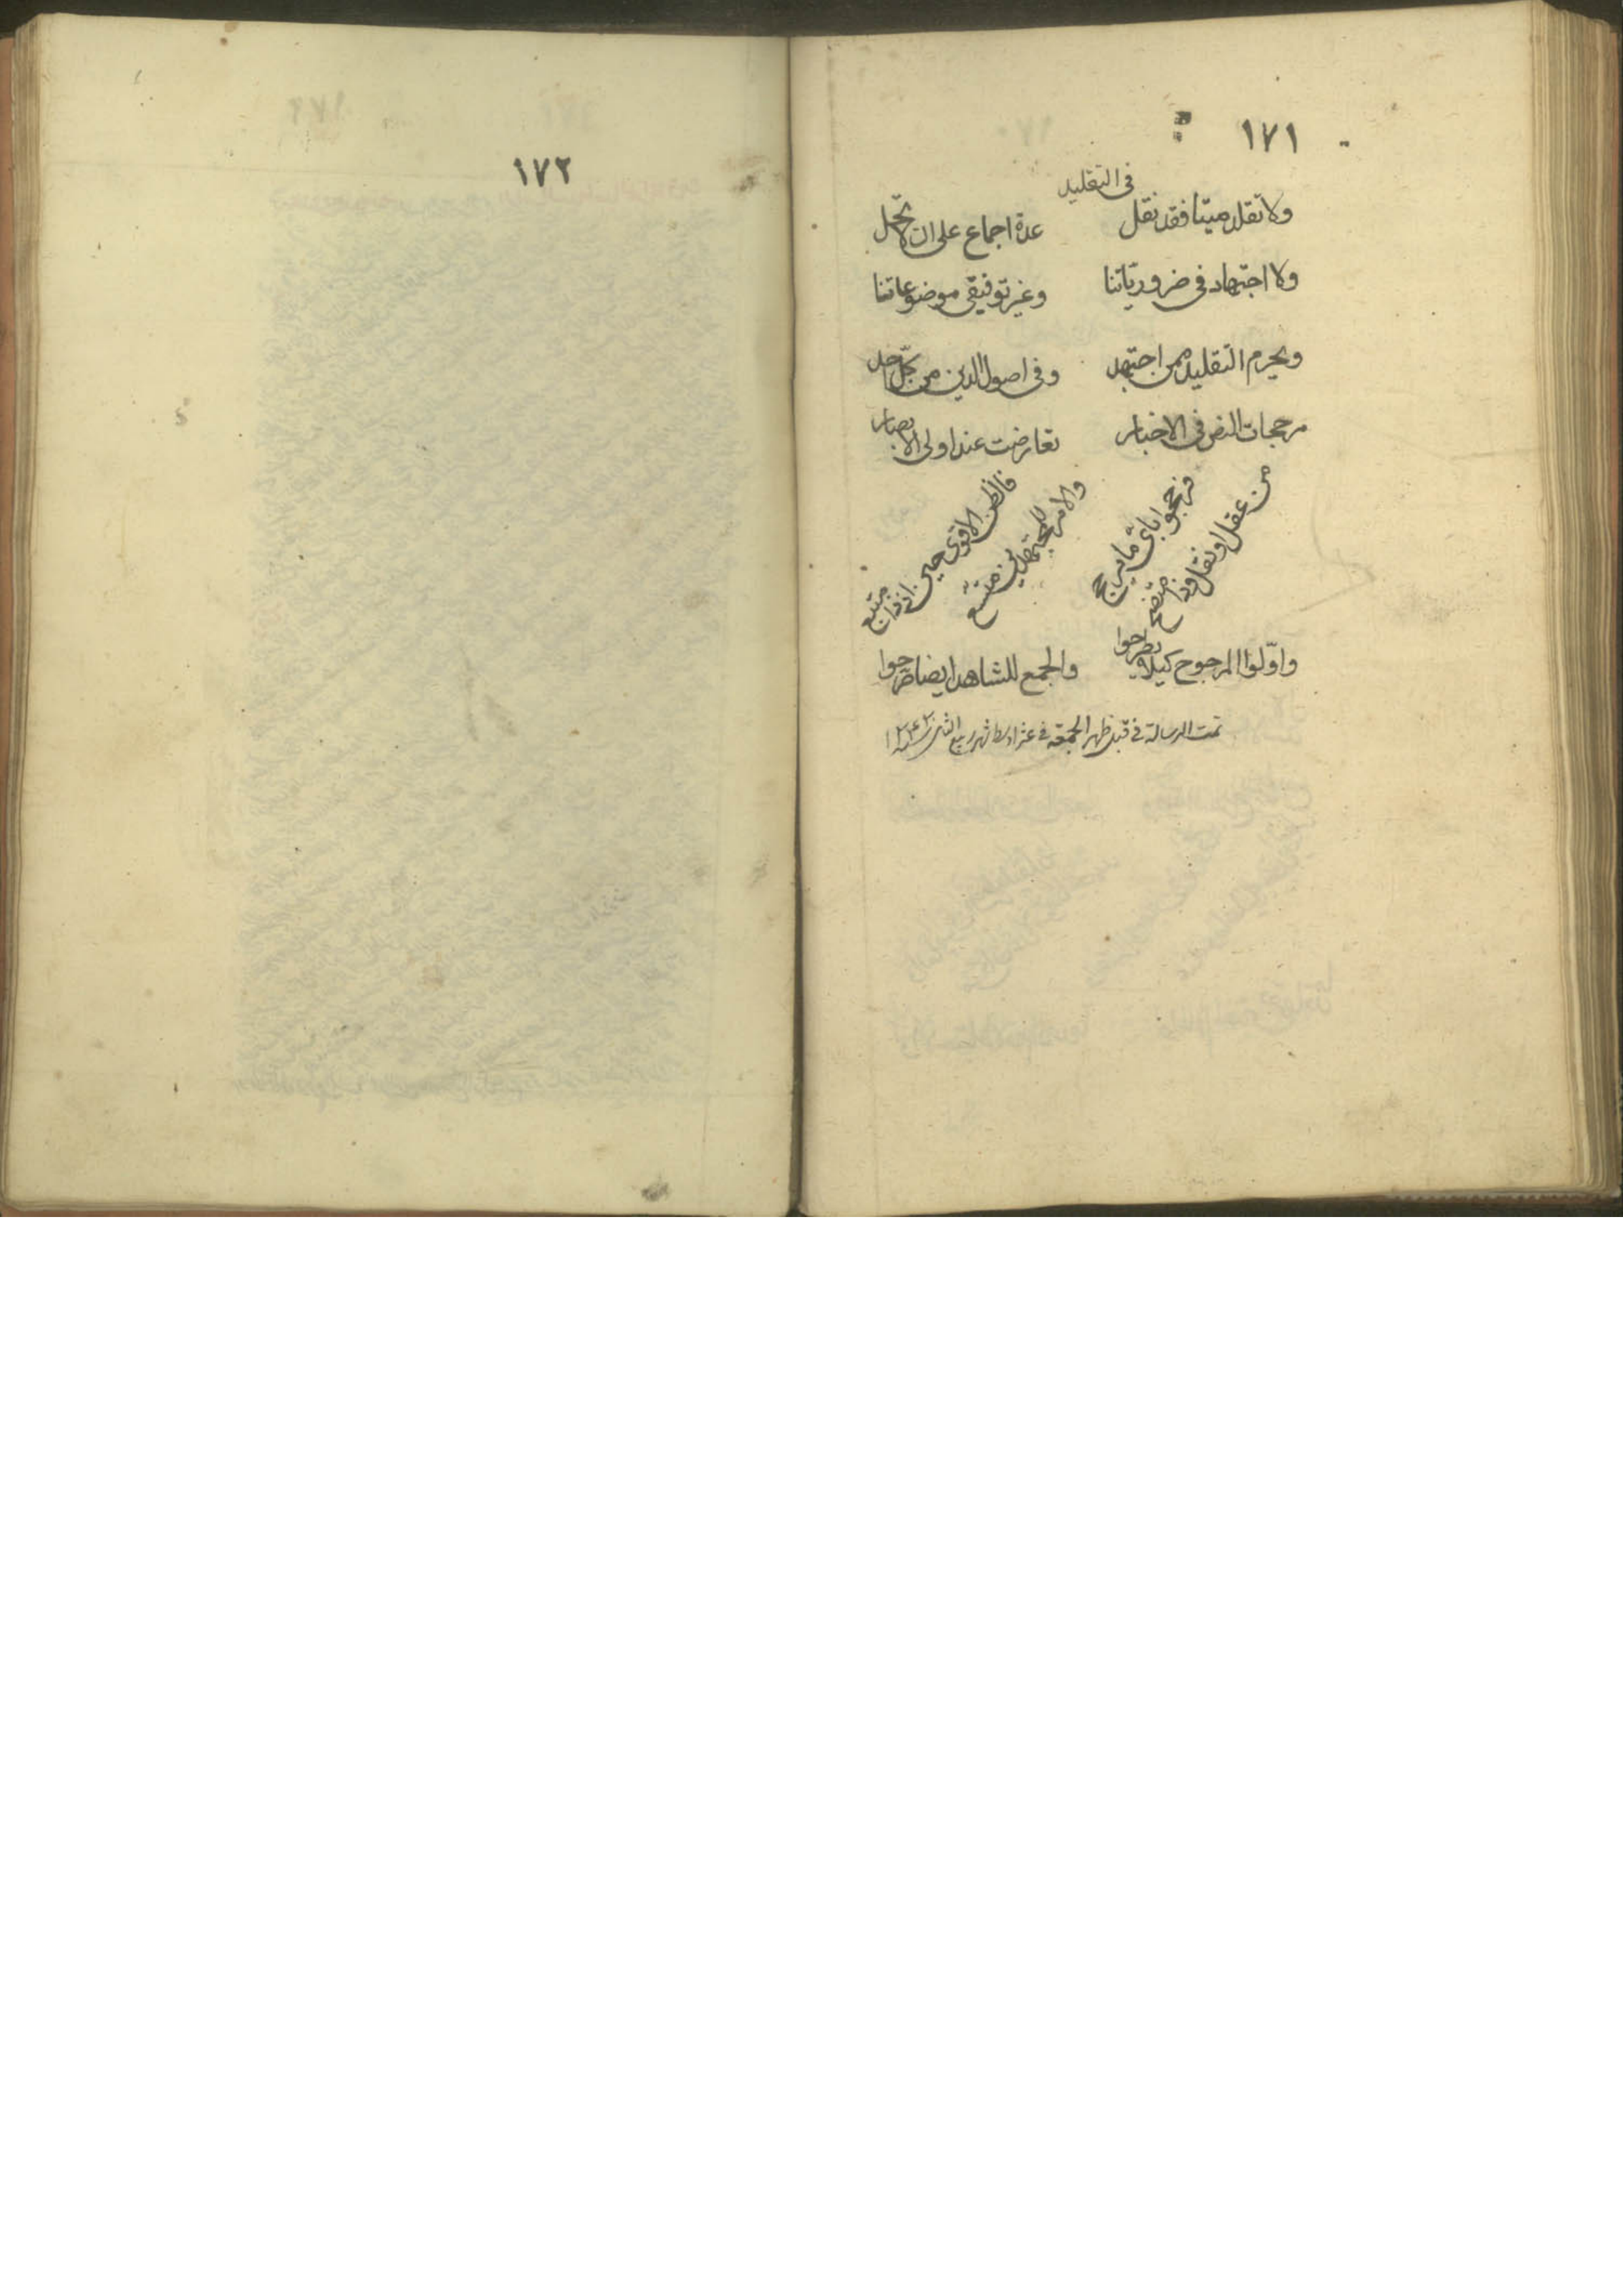 ١٧١
فى التقليد
ولا تقلد ميتا فقد نقل عدة اجماع على ان لا يحل
ولا اجتهاد فى ضروريّاتنا وغير توقيفى موضوعاتنا
ويحرم التقليد ممن اجتهد وفى اصول الدين من كل احد
مرجحات النص فى الاخبار تعارضت عند اولى الابصار
فرجحوا باىّ ما يرجح من عقل او نقل وذا متضح
فالظن الاقوى حين اذ ذا متبع والامر للمجتهدين متسع
واوّلوا المرجوح كيلا يطرحوا والجمع للشاهد ايضا صرحوا
تمت الرسالة فى قبل ظهر الجمعة فى شهر ربيع الثانى
١٧٢